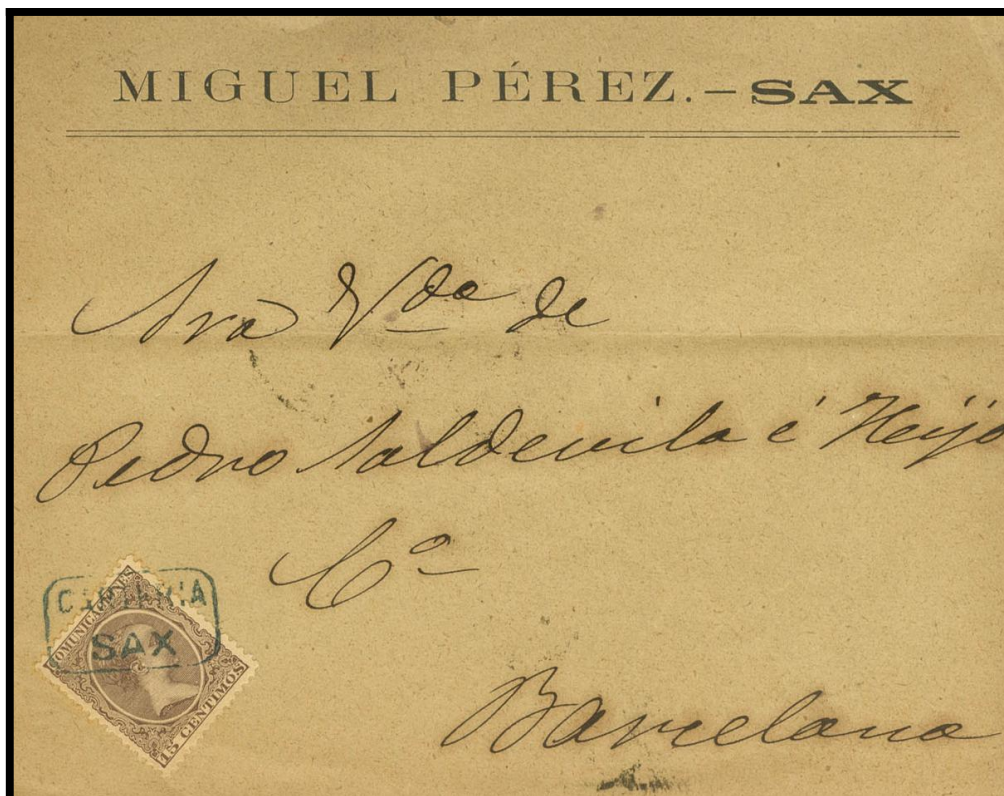 MIGUEL PÉREZ.–SAX
Sra Vda de
Pedro Soldevila é Heijo
Cª
Barcelona
CARTERIA
SAX
COMUNICACIONES
15 CENTIMOS